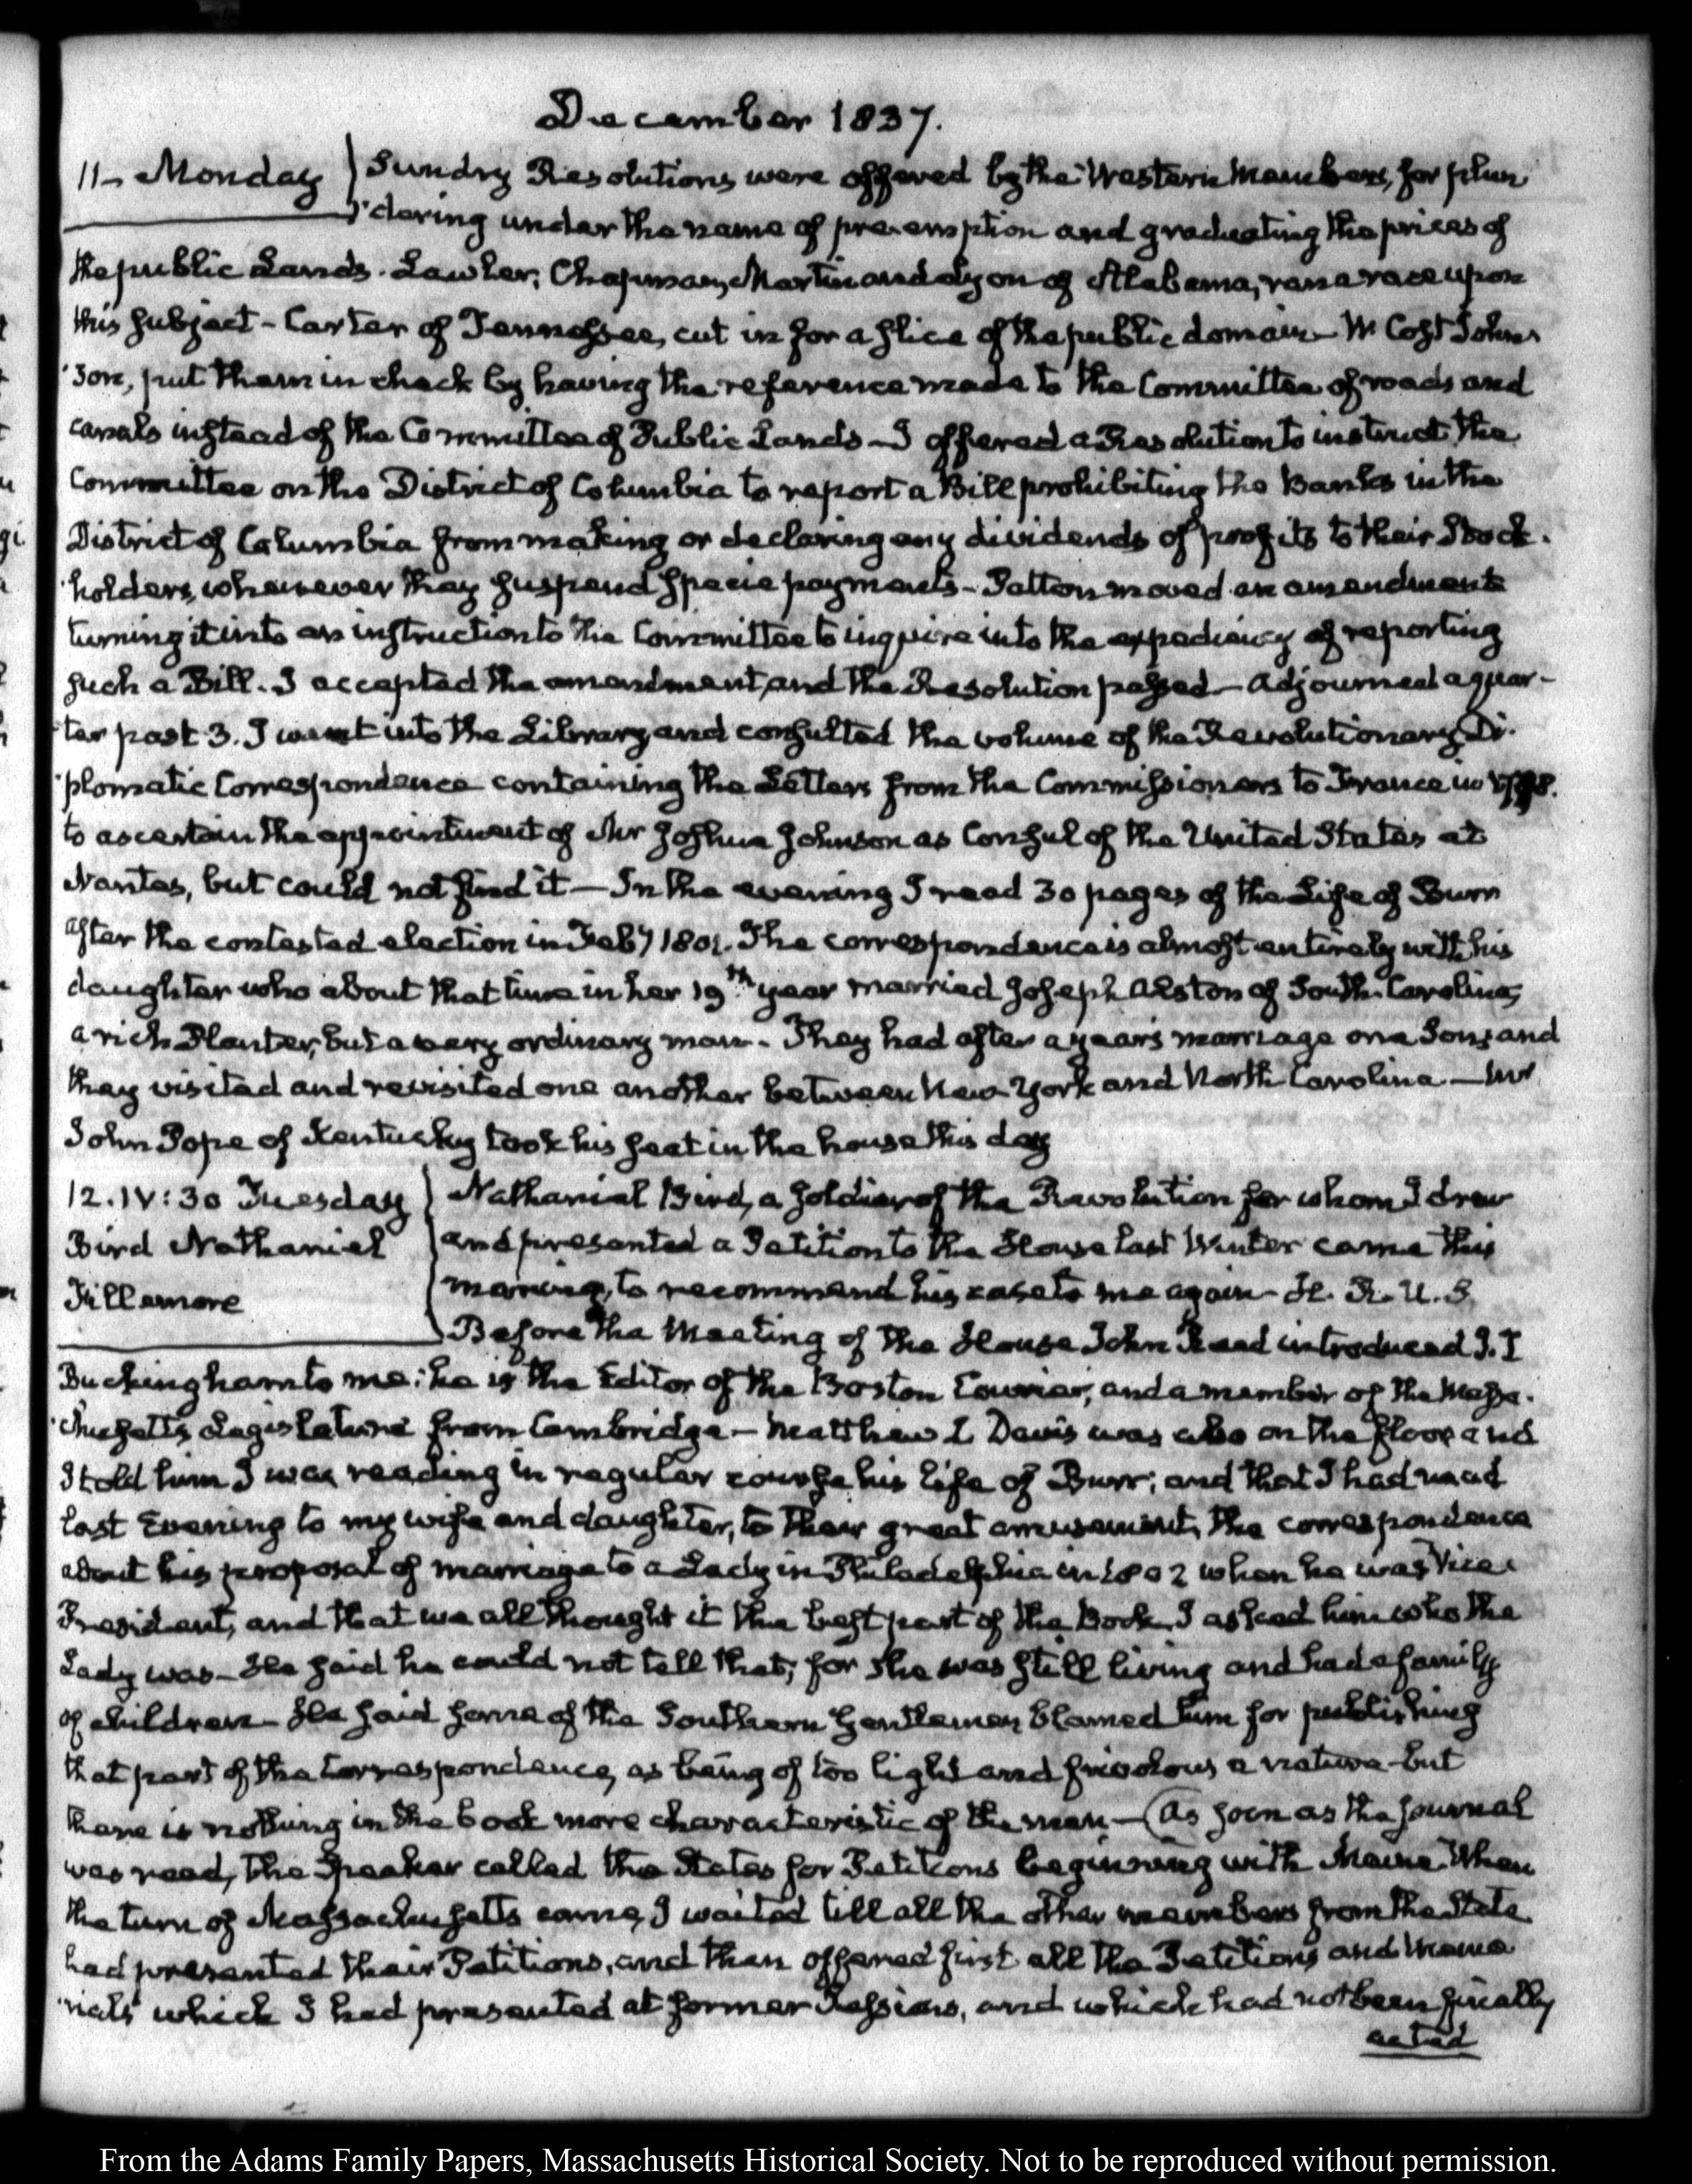 December 1837.
11– Monday Sundry Resolutions were offered by the Western Members, for plun
dering under the name of pre-emption and graduating the prices of
the public Lands. Lawler, Chapman, Martin and Lyon of Alabama, ran a race upon
this subject – Carter of Tennessee, cut in for a slice of the public domain – W Cost John
son, put them in check by having the reference made to the Committee of roads and
canals instead of the Committee of Public Lands – I offered a Resolution to instruct the
Committee on the District of Columbia to report a Bill prohibiting the Banks in the
District of Columbia from making or declaring any dividends of profits to their Stock-
holders, whenever they suspend specie payments – Patton moved an amendment
turning it into an instruction to the Committee to inquire into the expediency of reporting
such a Bill. I accepted the amendment, and the Resolution passed – Adjourned a quar-
ter past 3. I went into the Library and consulted the volume of the Revolutionary Di-
plomatic Correspondence containing the Letters from the Commissioners to France in
to ascertain the appointment of Mr Joshua Johnson as Consul of the United States at
Nantes, but could not find it – In the evening I read 30 pages of the Life of Burr
after the contested election in Feby 1801. The correspondence is almost entirely with his
daughter who about that time in her 19th year married Joseph Alston of South Carolina,
a rich Planter, but a very ordinary man. They had after a years marriage one Son, and
they visited and revisited one another between New York and North Carolina – Mr
John Pope of Kentucky took his seat in the house this day
12. IV:30 Tuesday Nathaniel Bird, a soldier of the Revolution for whom I drew
Bird Nathaniel and presented a Petition to the House last Winter came this
Fillamore morning, to recommend his case to me again – H. R. U. S.
Before the Meeting of the House John Read introduced J. T
Buckingham to me: he is the Editor of the Boston Courier, and a member of the Massa-
chusetts Legislature from Cambridge – Matthew L Davis was also on the floor and
I told him I was reading in regular course his life of Burr; and that I had read
last Evening to my wife and daughter, to their great amusement, the correspondence
about his proposal of marriage to a Lady in Philadelphia in 1802 when he was Vice
President, and that we all thought it the best part of the Book. I asked him who the
Lady was – He said he could not tell that, for she was still living and had a family
of children – He said some of the Southern Gentlemen blamed him for publishing
that part of the Correspondence, as being of too light and frivolous a nature – but
there is nothing in the book more characteristic of the man – (As soon as the Journal
was read, the Speaker called the States for Petitions beginning with Maine. When
the turn of Massachusetts came, I waited till all the other members from the State
had presented their Petitions, and then offered first all the Petitions and Memo
rials which I had presented at former Sessions, and which had not been finally
acted
From the Adams Family Papers, Massachusetts Historical Society. Not to be reproduced without permission.